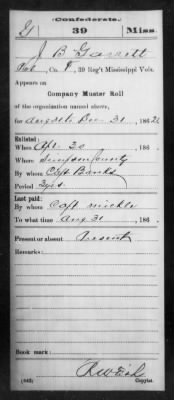 Confederate.
G 39 Miss.
J B Garrett
Co. F, 39 Reg't Mississippi Vols.
Appears on
Company Muster Roll
of the organization named above,
for Aug 31 to Dec 31, 1862
Enlisted:
When Apr 30, 186 .
Where Simpson County
By whom Capt Banks
Period 3 yrs
Last paid:
By whom Capt Mickle
To what time Aug 31, 186 .
Present or absent Present
Remarks:
Book mark:
(642)
Copyist.